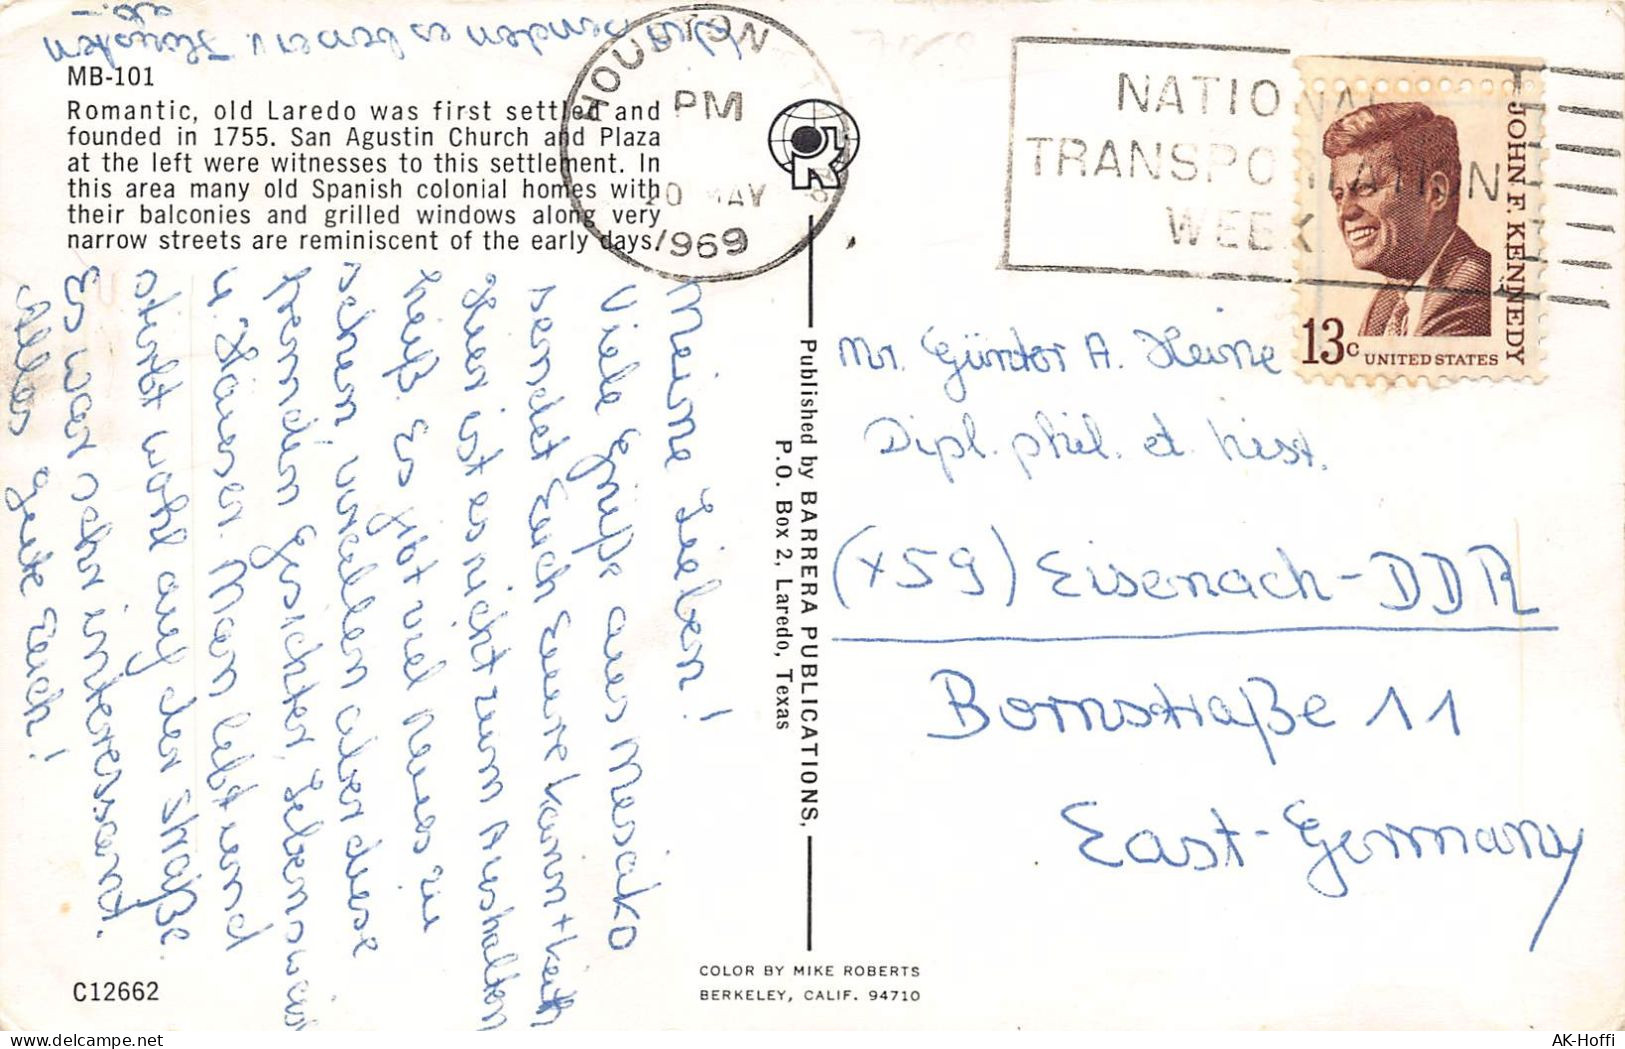 MB-101
Romantic, old Laredo was first settled and
founded in 1755. San Agustin Church and Plaza
at the left were witnesses to this settlement. In
this area many old Spanish colonial homes with
their balconies and grilled windows along very
narrow streets are reminiscent of the early days.
HOUSTON
PM
MAY
1969
NATIONAL
TRANSPORTATION
WEEK
JOHN F. KENNEDY
13c UNITED STATES
Meine Lieben!
Viele Grüße aus Mexiko
sendet Euch Eure
Hier ist es nicht zum Aushalten
heiß. Es gibt viel Neues zu
sehen, vor allen aber diese
fremden Gesichter, Lebensweise
u. Häuser. Man lebt und
stirbt wohl auf der Straße.
Es war sehr interessant.
Alles Gute Euch!
senden es besser v. Houston
ab.-
Published by BARRERA PUBLICATIONS,
P.O. Box 2, Laredo, Texas
Mr. Günter A. Heine
Dipl. phil. et hist.
(x59) Eisenach-DDR
Bornstraße 11
East-Germany
C12662
COLOR BY MIKE ROBERTS
BERKELEY, CALIF. 94710
hippostcard.com
AK-Hoffi